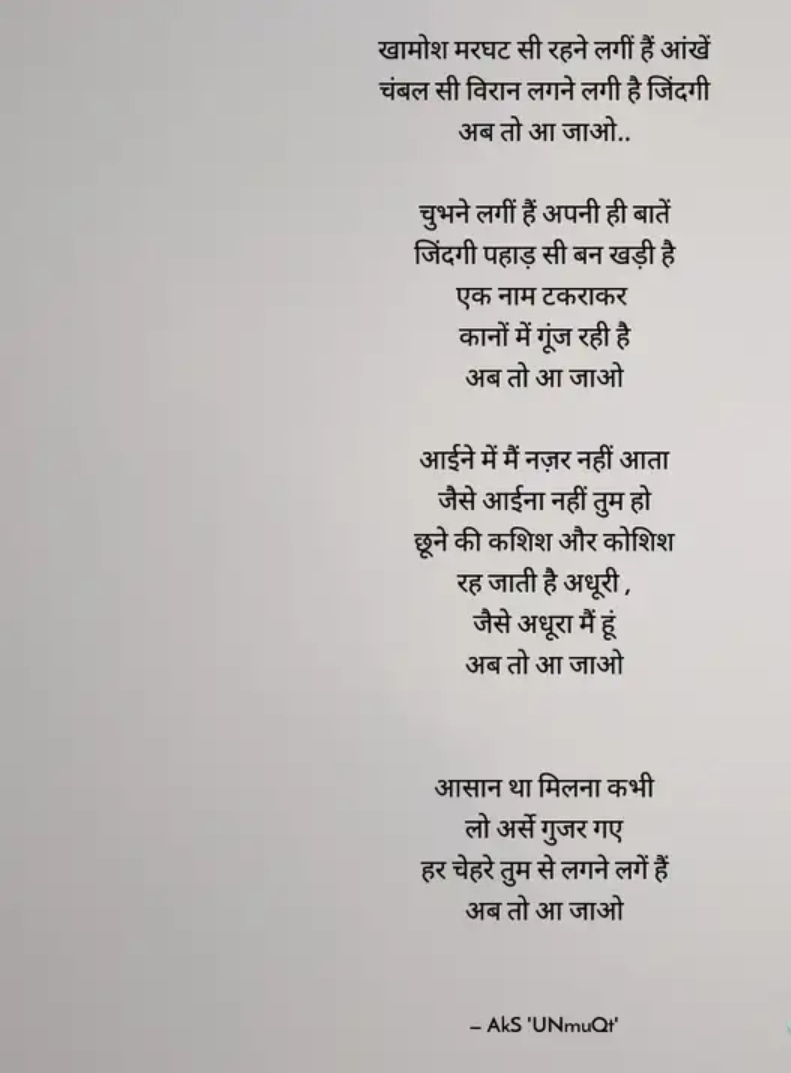 खामोश मरघट सी रहने लगीं हैं आंखें
चंबल सी विरान लगने लगी है जिंदगी
अब तो आ जाओ..
चुभने लगीं हैं अपनी ही बातें
जिंदगी पहाड़ सी बन खड़ी है
एक नाम टकराकर
कानों में गूंज रही है
अब तो आ जाओ
आईने में मैं नज़र नहीं आता
जैसे आईना नहीं तुम हो
छूने की कशिश और कोशिश
रह जाती है अधूरी ,
जैसे अधूरा मैं हूं
अब तो आ जाओ
आसान था मिलना कभी
लो अर्से गुजर गए
हर चेहरे तुम से लगने लगें हैं
अब तो आ जाओ
– AkS 'UNmuQt'